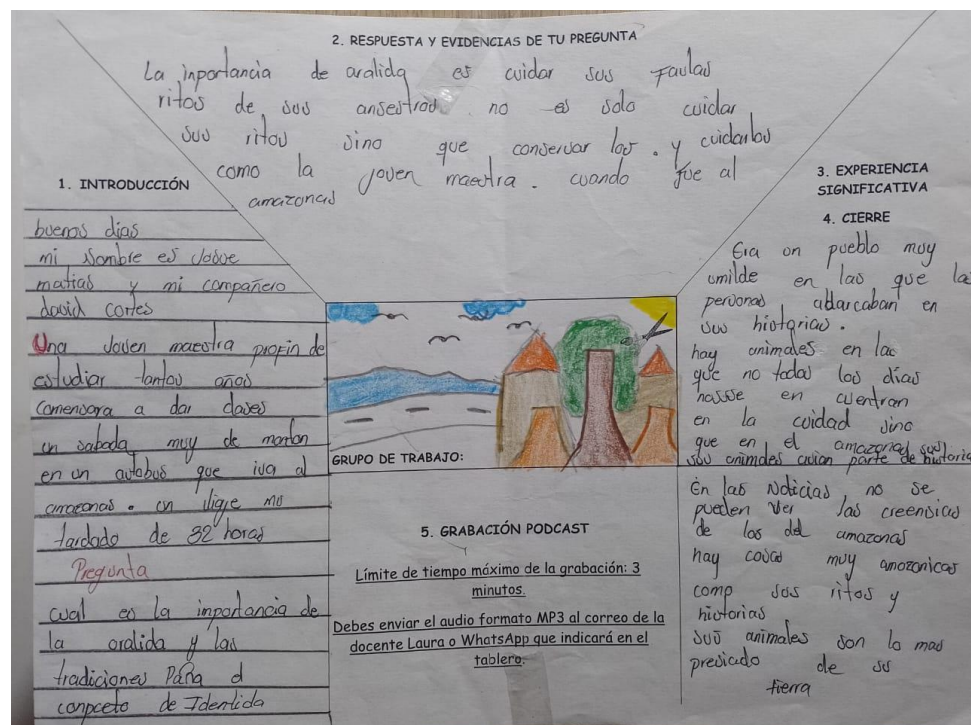 2. RESPUESTA Y EVIDENCIAS DE TU PREGUNTA
La inportancia de oralida es cuidar sus Faulas
ritos de sus ansestros. no es solo cuidar
sus ritos sino que conservar los. y cuidarlos
como la joven maestra. cuando fue al
amazonas
1. INTRODUCCIÓN
buenos dias
mi Nombre es Josue
matias y mi compañero
david cortes
Una joven maestra por fin de
estudiar tantos años
comensara a dar clases
un sabado muy de
en un autabus que iva al
amazonas. un viaje mo
tardado de 32 horas
Pregunta
cual es la inportancia de
la oralida y las
tradiciones Para el
conpceto de Identida
3. EXPERIENCIA
SIGNIFICATIVA
4. CIERRE
Era un pueblo muy
umilde en las que la
personas, abarcaban en
sus historias.
hay animales en las
que no todas los días
en cuentran
en la cuidad sino
que en el amazonas sus
sus animales avian parte de historia
En las Noticias, no se
pueden ver las creensias
de los del amazonas
hay cosas muy amazonicas
comp sus ritos y
historias
sus animales son lo mas
presiado de su
tierra
GRUPO DE TRABAJO:
5. GRABACIÓN PODCAST
Límite de tiempo máximo de la grabación: 3
minutos.
Debes enviar el audio formato MP3 al correo de la
docente Laura o WhatsApp que indicará en el
tablero.